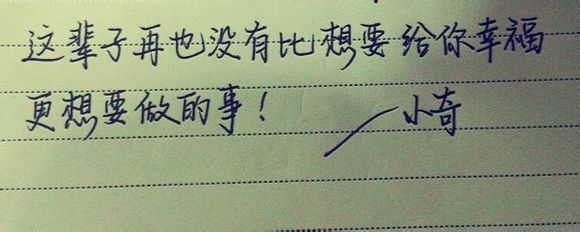 这辈子再也没有比想要给你幸福
更想要做的事！ —小奇